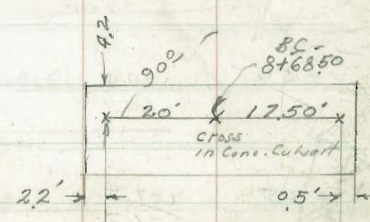 4.2
90°
B.C.
8+68.50
20' 17.50'
Cross
in Conc. Culvert
2.2' 0.5'